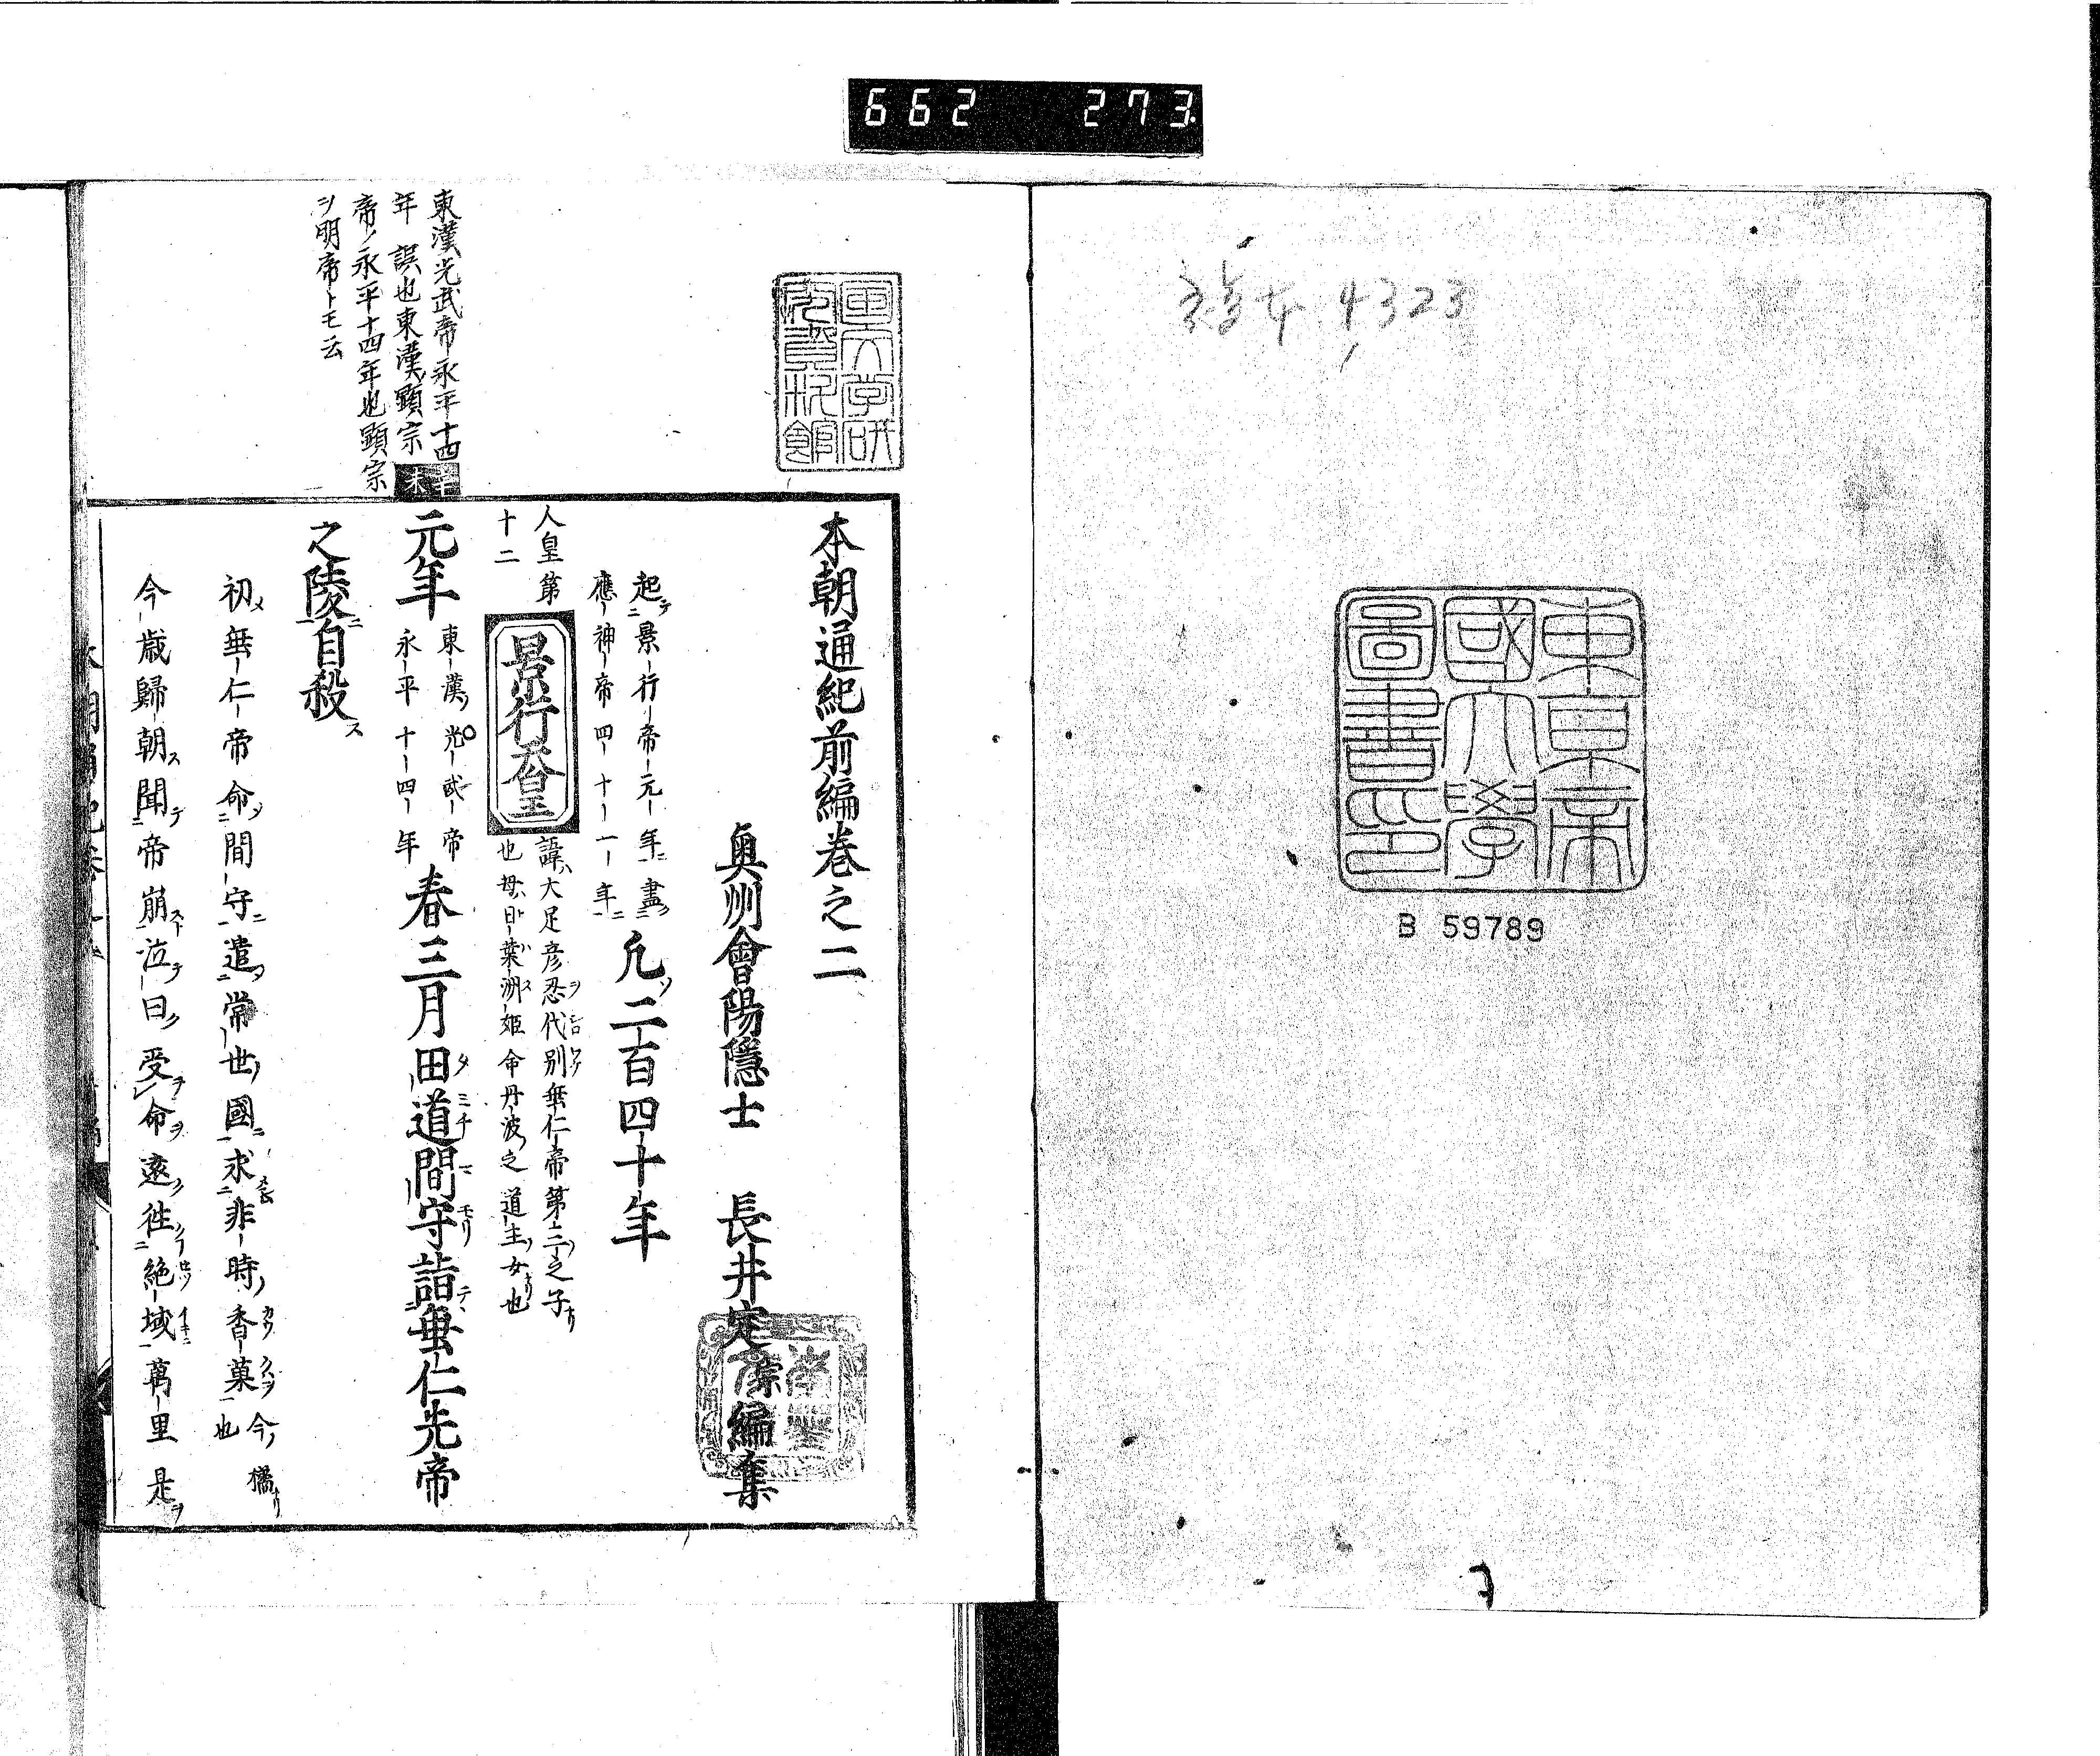 662 273
4323
東京帝
國大學
圖書印
B 59789
本朝通紀前編巻之二
奥州會陽隱士 長井定宗編集
起景行帝元年盡
應神帝四十一年
凢二百四十年
人皇第
十二
景行天皇
諱ハ大足彦忍代別垂仁帝第三之子ナリ
也母ハ曰ハ葉洲姫命丹波之道主女也
辛
未
元年
東漢光武帝
永平十四年
春三月田道間守詣垂仁先帝
之陵自殺ス
初メ垂仁帝命間守遣常世國求非時香菓
今ノ橘ナリ
也
今歳歸朝ス聞帝崩泣テ曰ク受命ヲ遠往絶域萬里是ヲ
東漢光武帝永平十四
年 誤也東漢顕宗
帝ノ永平十四年也顕宗
ヲ明帝トモ云